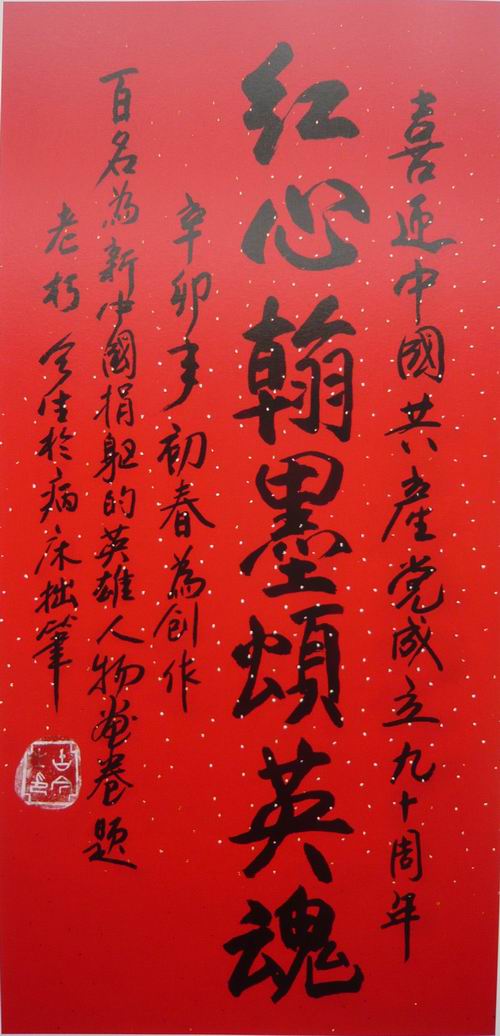 喜迎中國共產党成立九十周年
红心翰墨頌英魂
辛卯年初春為创作
百名為新中國捐躯的英雄人物畫卷题
老朽今生於病床拙筆